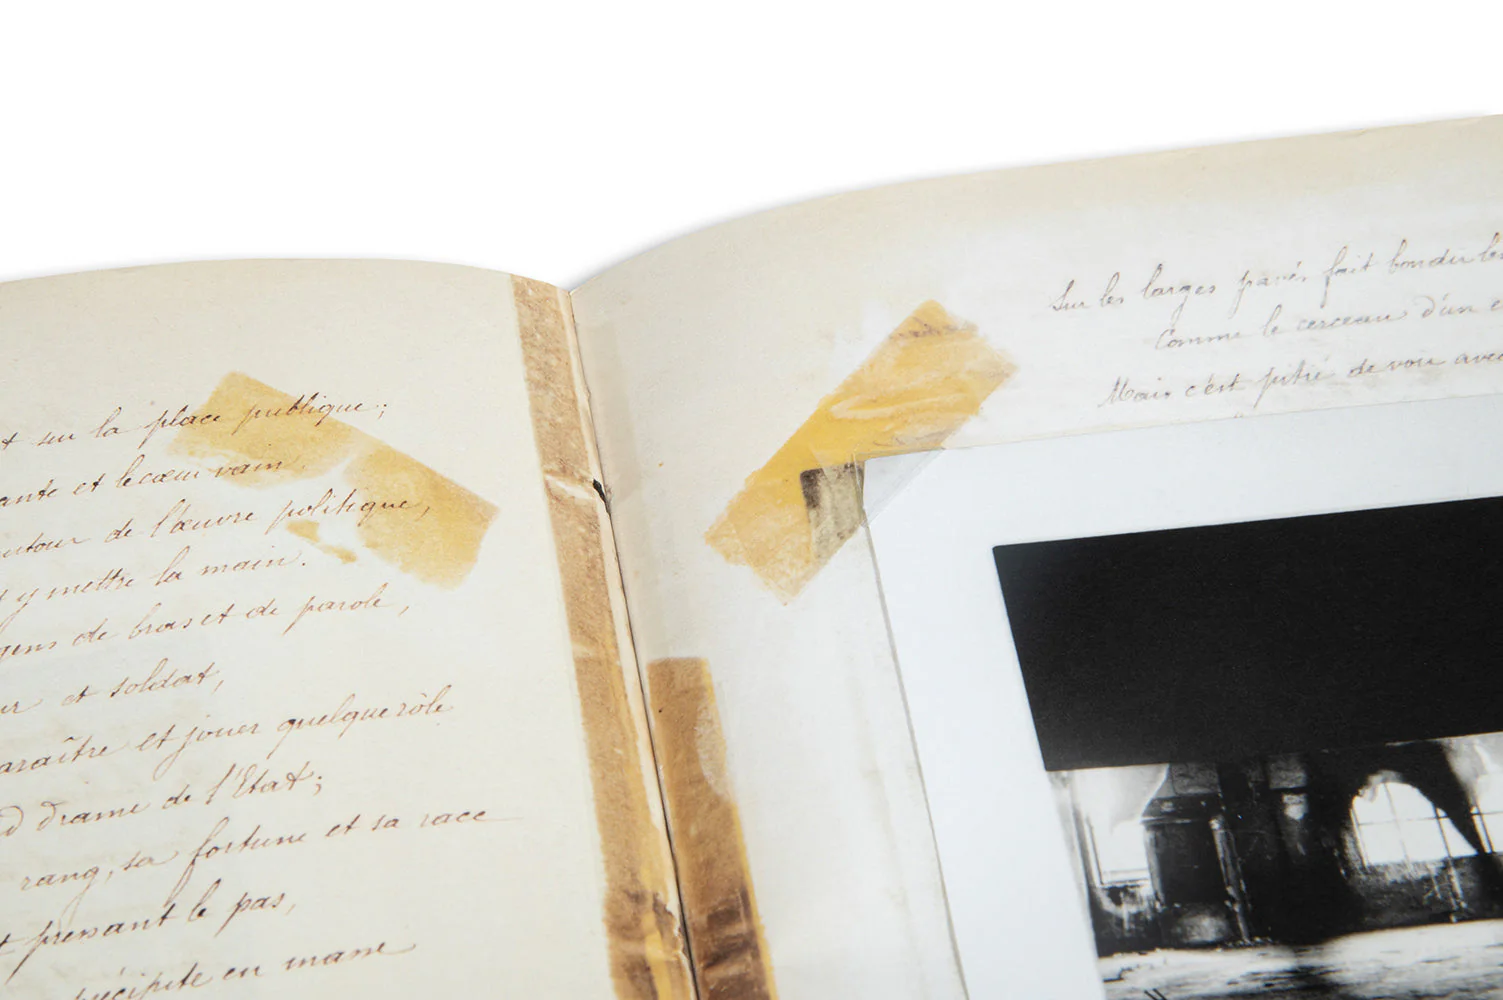 sur la place publique ;
et le cœur vain
autour de l'œuvre politique,
y mettre la main.
gens de bras et de parole,
et soldat,
paraître et jouer quelque rôle
drame de l'Etat ;
rang, sa fortune et sa race
pressant le pas,
précipite en masse
Sur les larges pavés fait bondir les
Comme le cerceau d'un
Mais c'est pitié de voir avec